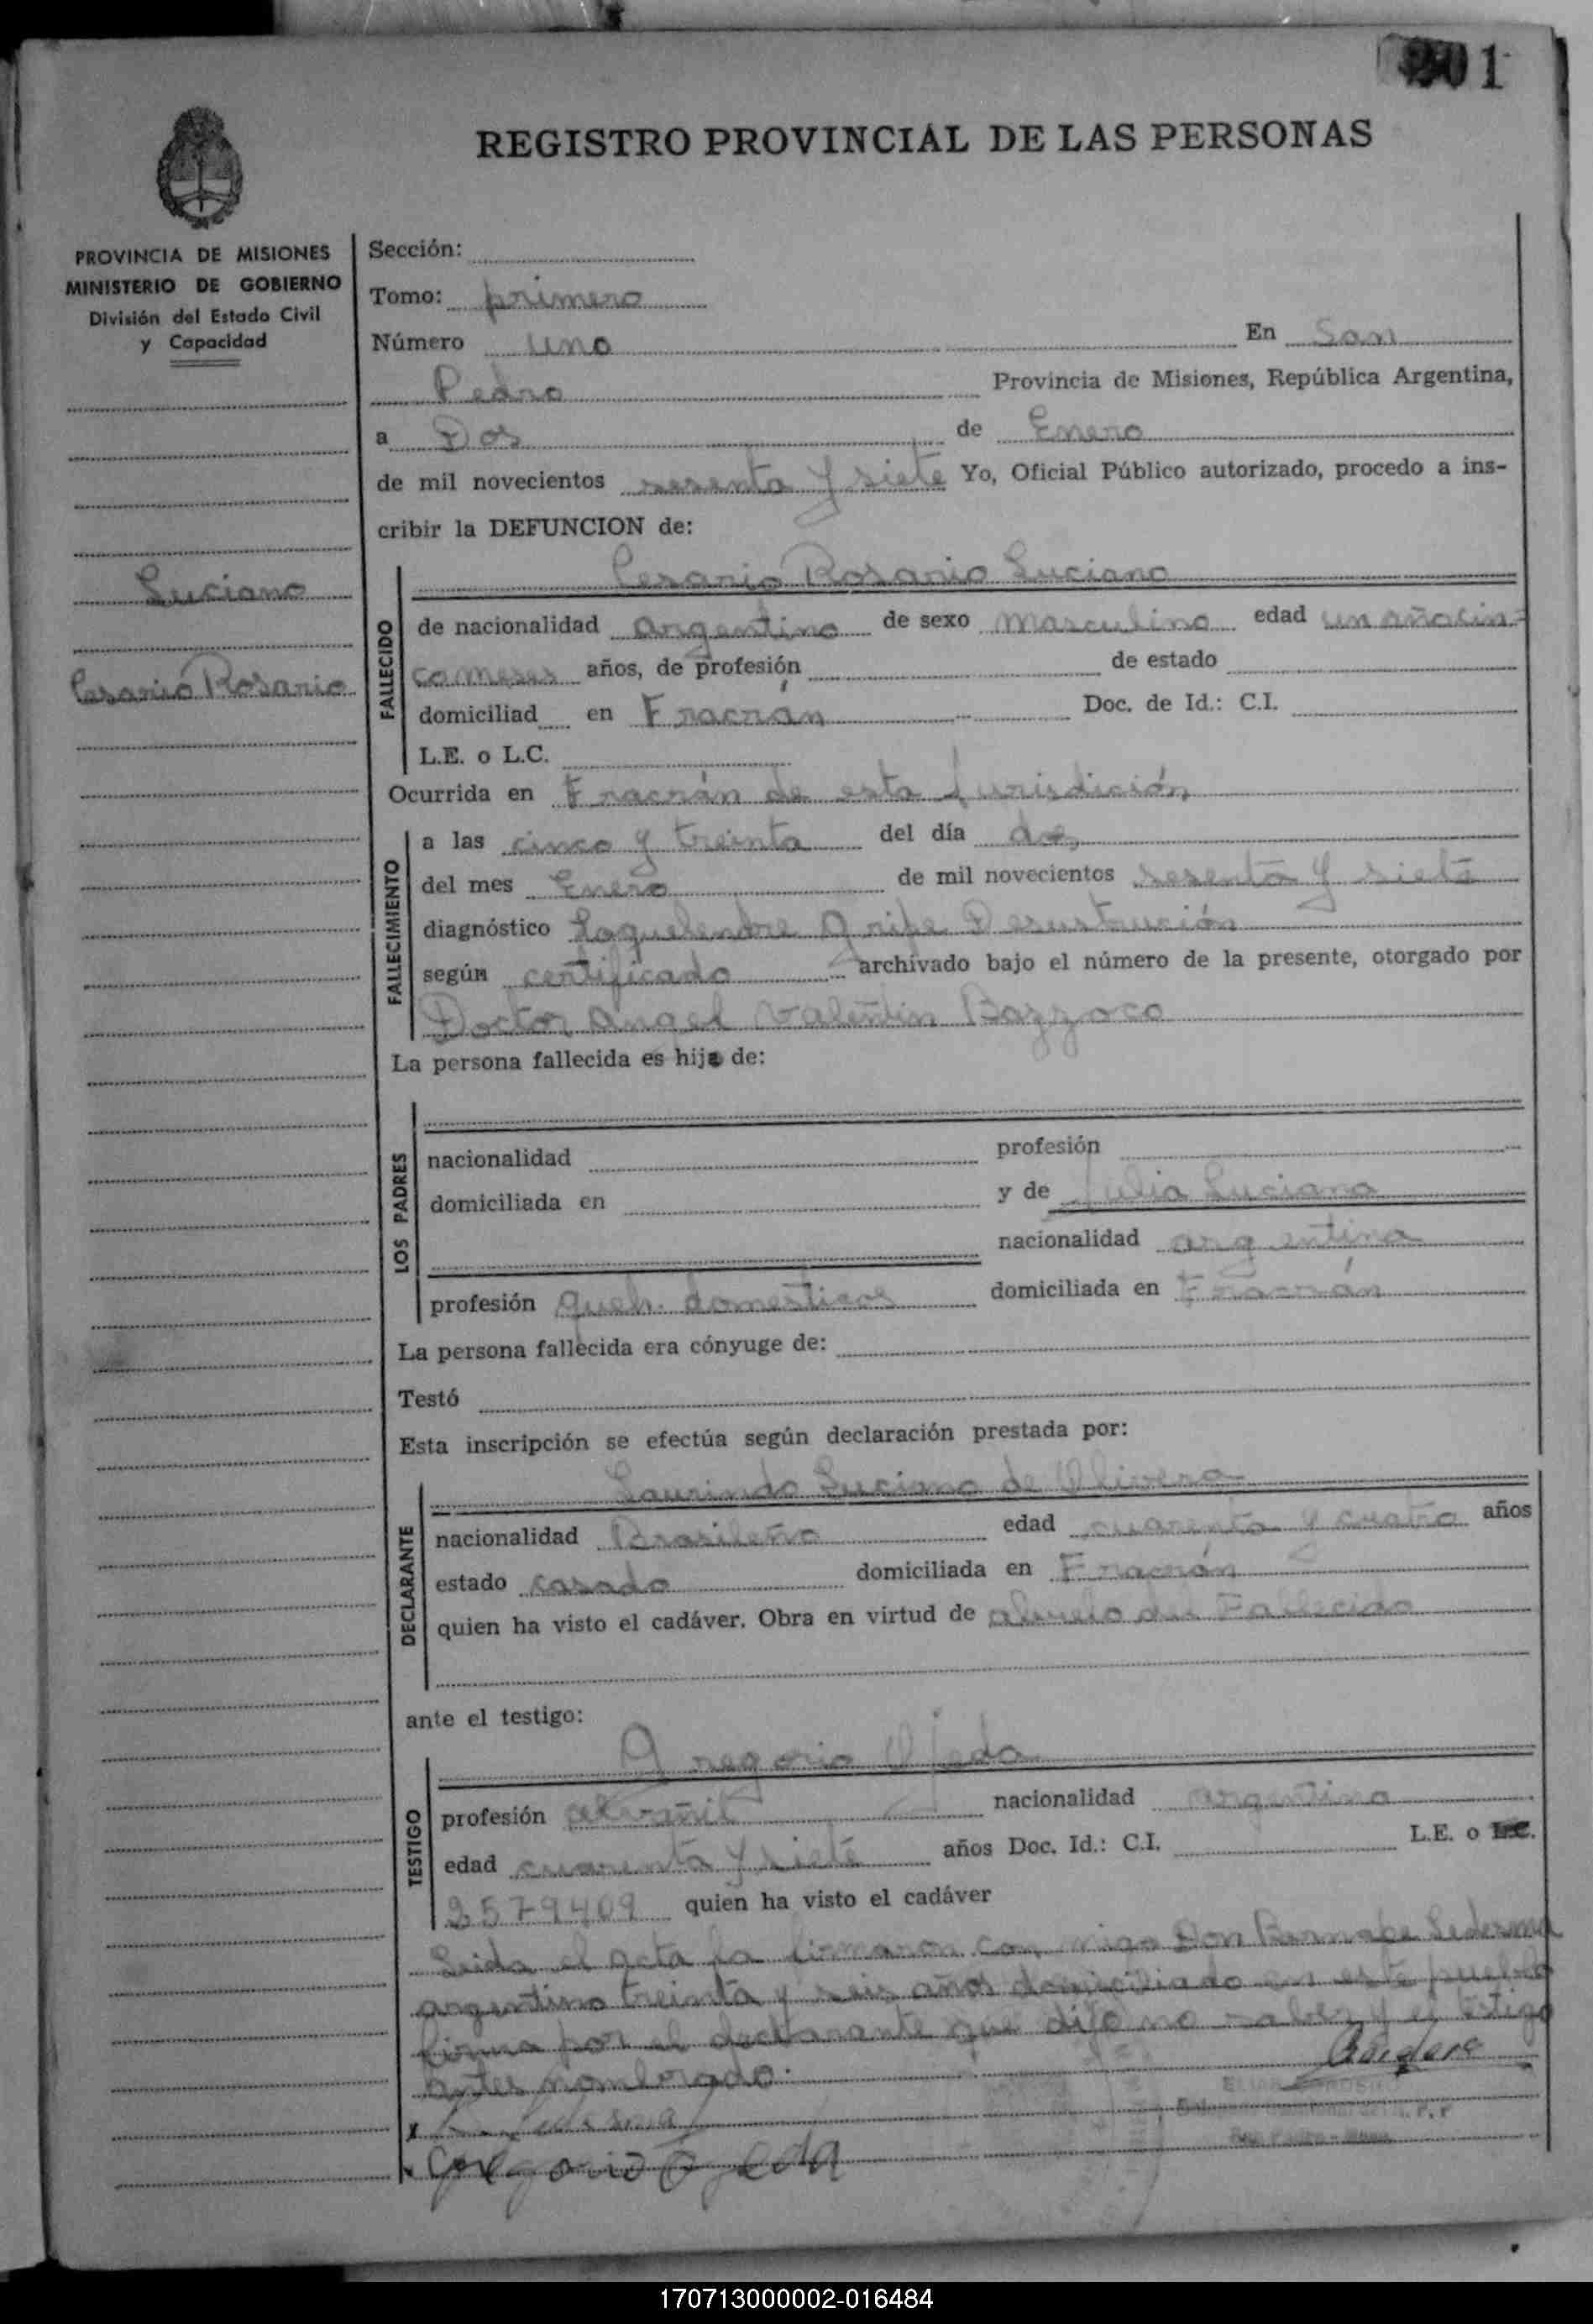 01
REGISTRO PROVINCIAL DE LAS PERSONAS
PROVINCIA DE MISIONES
MINISTERIO DE GOBIERNO
División del Estado Civil
y Capacidad
Luciano
Cesario Rosario
Sección:
Tomo: primero
Número uno En San
Pedro Provincia de Misiones, República Argentina,
a Dos de Enero
de mil novecientos sesenta y siete Yo, Oficial Público autorizado, procedo a ins-
cribir la DEFUNCION de:
Cesario Rosario Luciano
FALLECIDO
de nacionalidad argentino de sexo masculino edad un año cin-
co meses años, de profesión de estado
domiciliad en Fracrán Doc. de Id.: C.I.
L.E. o L.C.
Ocurrida en Fracrán de esta Jurisdición
FALLECIMIENTO
a las cinco y treinta del día dos
del mes Enero de mil novecientos sesenta y siete
diagnóstico gripe
según certificado archivado bajo el número de la presente, otorgado por
Doctor Angel Valentin Bazzoco
La persona fallecida es hijo de:
LOS PADRES
nacionalidad profesión
domiciliada en y de Julia Luciano
nacionalidad argentina
profesión queh. domesticos domiciliada en Fracrán
La persona fallecida era cónyuge de:
Testó
Esta inscripción se efectúa según declaración prestada por:
Laurindo Luciano de Olivera
DECLARANTE
nacionalidad Brasileño edad cuarenta y cuatro años
estado casado domiciliada en Fracrán
quien ha visto el cadáver. Obra en virtud de abuelo del Fallecido
ante el testigo:
Gregorio Ojeda
TESTIGO
profesión albañil nacionalidad argentina
edad cuarenta y siete años Doc. Id.: C.I. L.E. o L.C.
2579409 quien ha visto el cadáver
Leida el acta la firmaron con migo Don Bernabe Ledesma
argentino treinta y seis años domiciliado en este pueblo
firma por el declarante que dijo no saber y el testigo
antes nombrado.
Gregorio Ojeda
170713000002-016484